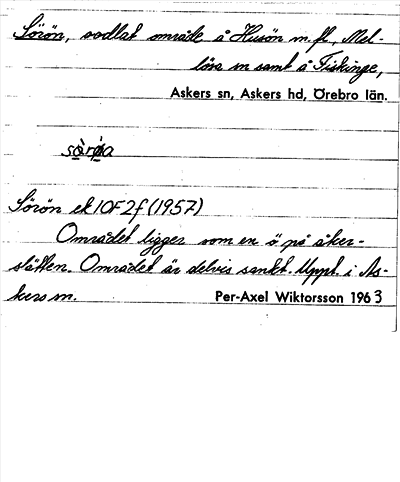 Sörön, odlat område å Husön m.fl., Mel-
lösa sn samt å Fiskinge,
Askers sn, Askers hd, Örebro län.
Sörön ek 10F2f (1957)
Området ligger som en ö på åker-
slätten. Området är delvis sankt. Uppt. i As-
kers sn.
Per-Axel Wiktorsson 1963